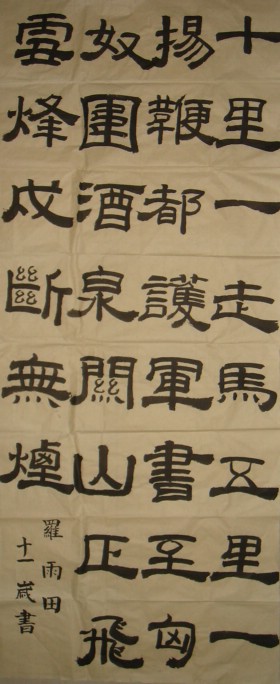 十里一走馬五里一
揚鞭都護軍書至匈
奴圍酒泉關山正飛
雪烽戍斷無煙
羅雨田
十一歲書